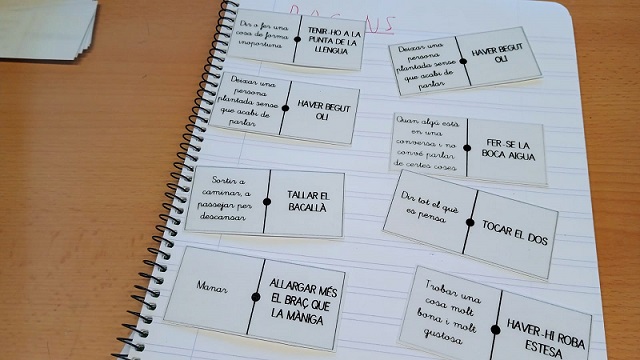 Dir o fer una
cosa de forma
inoportuna
TENIR-HO A LA
PUNTA DE LA
LLENGUA
Deixar una
persona
plantada sense
que acabi de
parlar
HAVER BEGUT
OLI
Deixar una
persona
plantada sense
que acabi de
parlar
HAVER BEGUT
OLI
Quan algú està
en una
conversa i no
convé parlar
de certes coses
FER-SE LA
BOCA AIGUA
Sortir a
caminar, a
passejar per
descansar
TALLAR EL
BACALLÀ
Dir tot el què
es pensa
TOCAR EL DOS
Manar
ALLARGAR MÉS
EL BRAÇ QUE
LA MÀNIGA
Trobar una
cosa molt
bona i molt
gustosa
HAVER-HI ROBA
ESTESA